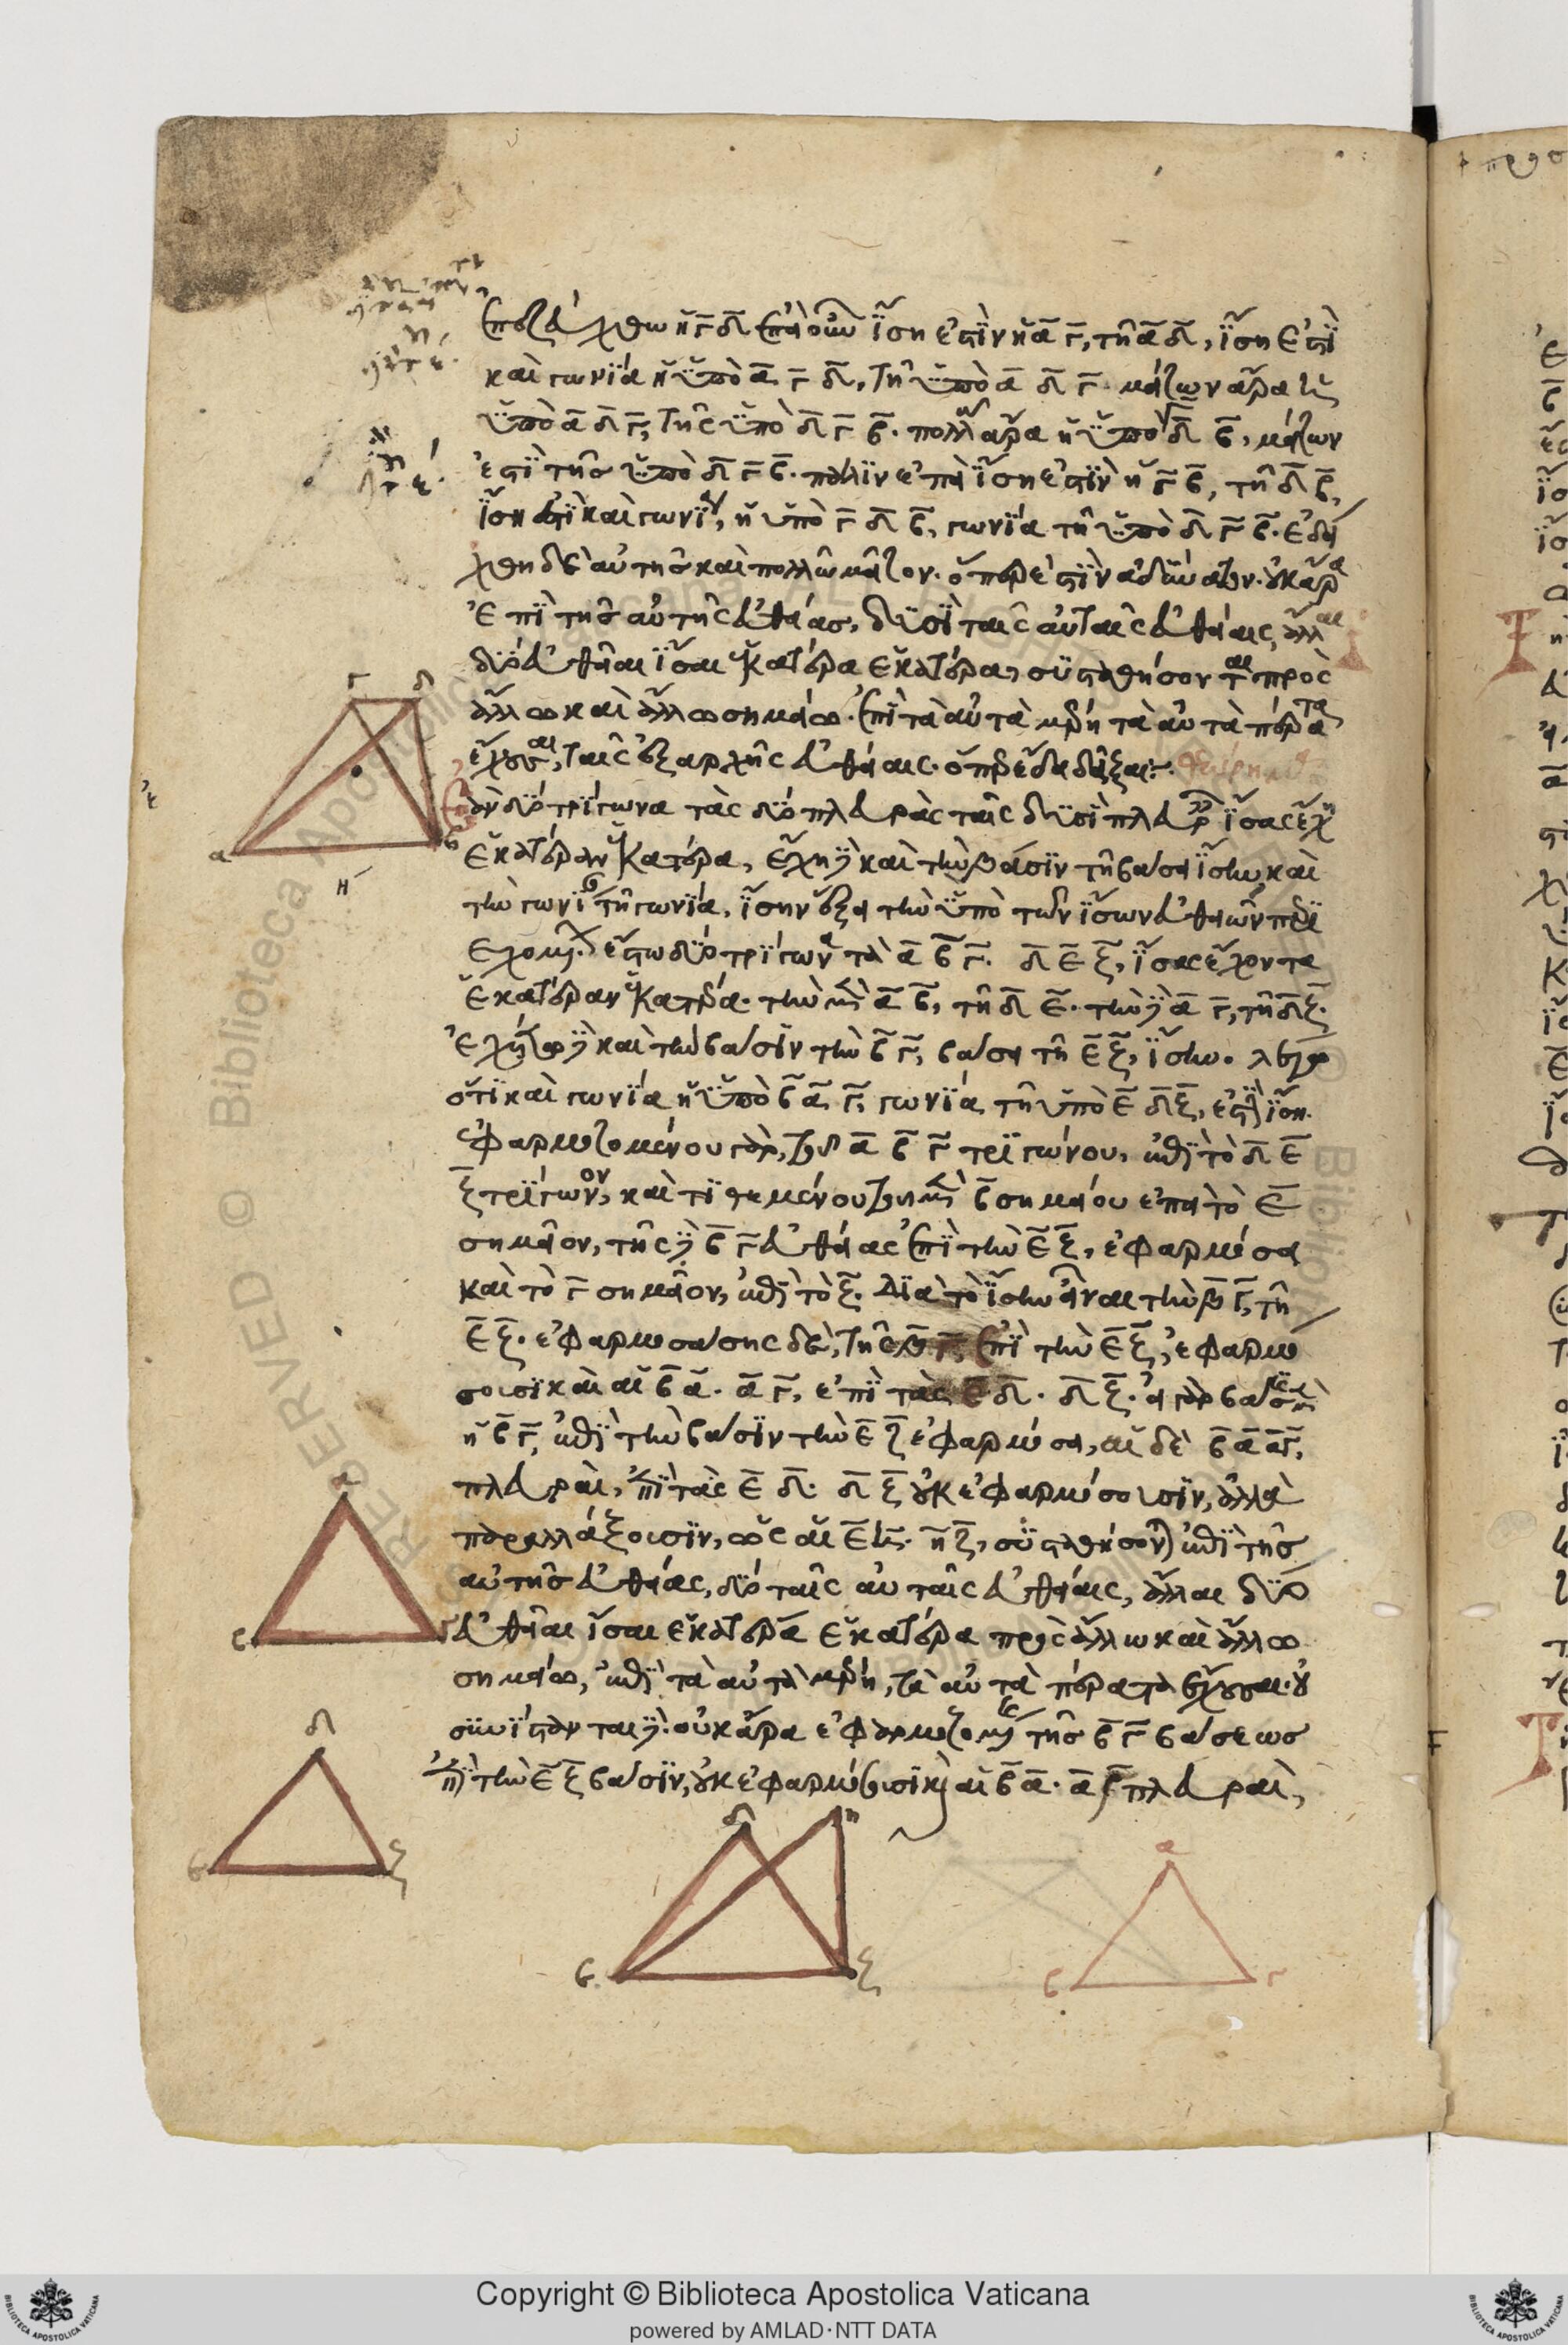 ἐπεζεύχθω ἡ γδ ἐπεὶ οὖν ἴση ἐστὶν ἡ α γ, τῆ α δ, ἴση ἐστὶ
καὶ γωνία ἡ ὑπὸ α γ δ, τῆ ὑπὸ α δ γ. μείζων ἄρα ἡ
ὑπὸ α δ γ, τῆς ὑπὸ δ γ β. πολλῶ ἄρα ἡ ὑπὸ γ δ β, μείζων
ἐστὶ τῆς ὑπὸ δ γ β. πάλιν ἐπεὶ ἴση ἐστὶν ἡ γ β, τῆ δ β,
ἴση ἐστὶ καὶ γωνία, ἡ ὑπὸ γ δ β, γωνία τῆ ὑπὸ δ γ β. ἐδεί
χθη δὲ αὐτῆς καὶ πολλῶ μεῖζον. ὅπερ ἐστὶν ἀδύνατον. οὐκ ἄρα
ἐπὶ τῆς αὐτῆς εὐθείας, δυσὶ ταῖς αὐταῖς εὐθείαις, ἄλλαι
δύο εὐθεῖαι ἴσαι ἑκατέρα ἑκατέρα, συσταθήσονται πρὸς
ἄλλω καὶ ἄλλω σημείω. ἐπὶ τὰ αὐτὰ μέρη τὰ αὐτὰ πέρατα
ἔχουσαι, ταῖς ἐξ ἀρχῆς εὐθείαις. ὅπερ ἔδει δεῖξαι:
ἐὰν δύο τρίγωνα τὰς δύο πλευρὰς ταῖς δυσὶ πλευραῖς ἴσας ἔχη
ἑκατέραν ἑκατέρα, ἔχη δὲ καὶ τὴν βάσιν τῆ βάσει ἴσην, καὶ
τὴν γωνίαν τῆ γωνία, ἴσην ἕξει τὴν ὑπὸ τῶν ἴσων εὐθειῶν περι
εχομένην. ἔστω δύο τρίγωνα τὰ α β γ. δ ε ζ, ἴσας ἔχοντα
ἑκατέραν ἑκατέρα. τὴν μὲν α β, τῆ δ ε. τὴν δὲ α γ, τῆ δ ζ.
ἐχέτω δὲ καὶ τὴν βάσιν τὴν β γ, βάσει τῆ ε ζ, ἴσην. λέγω
ὅτι καὶ γωνία ἡ ὑπὸ β α γ, γωνία τῆ ὑπὸ ε δ ζ, ἐστὶν ἴση.
ἐφαρμοζομένου γὰρ, τοῦ α β γ τριγώνου, ἐπὶ τὸ δ ε
ζ τρίγωνον, καὶ τιθεμένου τοῦ μὲν β σημείου ἐπὶ τὸ ε
σημεῖον, τῆς δὲ β γ εὐθείας ἐπὶ τὴν ε ζ, ἐφαρμόσει
καὶ τὸ γ σημεῖον, ἐπὶ τὸ ζ. διὰ τὸ ἴσην εἶναι τὴν β γ, τῆ
ε ζ. ἐφαρμοσάσης δὲ, τῆς β γ, ἐπὶ τὴν ε ζ, ἐφαρμό
σουσι καὶ αἱ β α. α γ, ἐπὶ τὰς ε δ. δ ζ. εἰ γὰρ βάσις μὲν
ἡ β γ, ἐπὶ τὴν βάσιν τὴν ε ζ ἐφαρμόσει, αἱ δὲ β α α γ,
πλευραὶ, ἐπὶ τὰς ε δ. δ ζ οὐκ ἐφαρμόσουσιν, ἀλλὰ
παραλλάξουσιν, ὡς αἱ ε η. η ζ, συσταθήσονται ἐπὶ τῆς
αὐτῆς εὐθείας, δύο ταῖς αὐταῖς εὐθείαις, ἄλλαι δύο
εὐθεῖαι ἴσαι ἑκατέρα ἑκατέρα πρὸς ἄλλω καὶ ἄλλω
σημείω, ἐπὶ τὰ αὐτὰ μέρη, τὰ αὐτὰ πέρατα ἔχουσαι. οὐ
συνίστανται δὲ. οὐκ ἄρα ἐφαρμοζομένης τῆς β γ βάσεως
ἐπὶ τὴν ε ζ βάσιν, οὐκ ἐφαρμόσουσι καὶ αἱ β α. α γ πλευραὶ,
γ δ
α β
η
α
β γ
δ
ε ζ
δ η
ε ζ
α
β γ
Copyright © Biblioteca Apostolica Vaticana
powered by AMLAD·NTT DATA